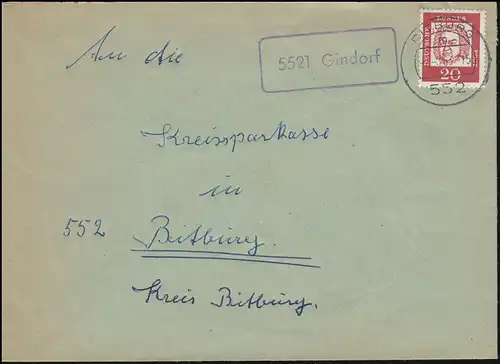 An die
5521 Gindorf
DEUTSCHE BUNDESPOST
20
552
Kreissparkasse
in
552 Bitburg.
Kreis Bitburg.